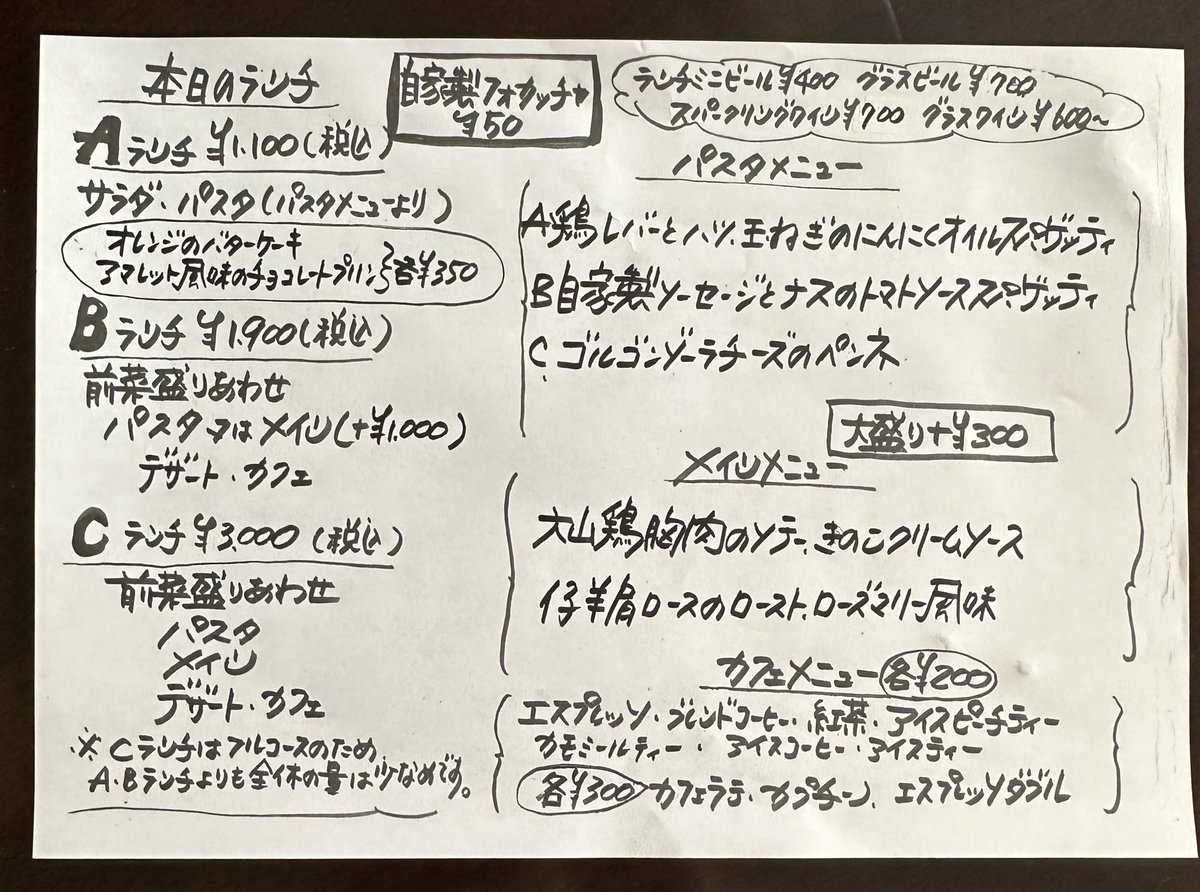 本日のランチ
Aランチ ¥1,100(税込)
サラダ・パスタ(パスタメニューより)
オレンジのバターケーキ
アマレット風味のチョコレートプリン 各¥350
Bランチ ¥1,900(税込)
前菜盛りあわせ
パスタ又はメイン(+¥1,000)
デザート・カフェ
Cランチ ¥3,000(税込)
前菜盛りあわせ
パスタ
メイン
デザート・カフェ
※Cランチはフルコースのため
A・Bランチよりも全体の量は少なめです。
自家製フォカッチャ
¥50
ランチミニビール¥400 グラスビール¥700
スパークリングワイン¥700 グラスワイン¥600~
パスタメニュー
A 鶏レバーとハツ、玉ねぎのにんにくオイルスパゲッティ
B 自家製ソーセージとナスのトマトソーススパゲッティ
C ゴルゴンゾーラチーズのペンネ
大盛り+¥300
メインメニュー
大山鶏胸肉のソテー、きのこクリームソース
仔羊肩ロースのロースト、ローズマリー風味
カフェメニュー 各¥200
エスプレッソ・ブレンドコーヒー・紅茶・アイスピーチティー
カモミールティー・アイスコーヒー・アイスティー
各¥300 カフェラテ、カプチーノ、エスプレッソダブル